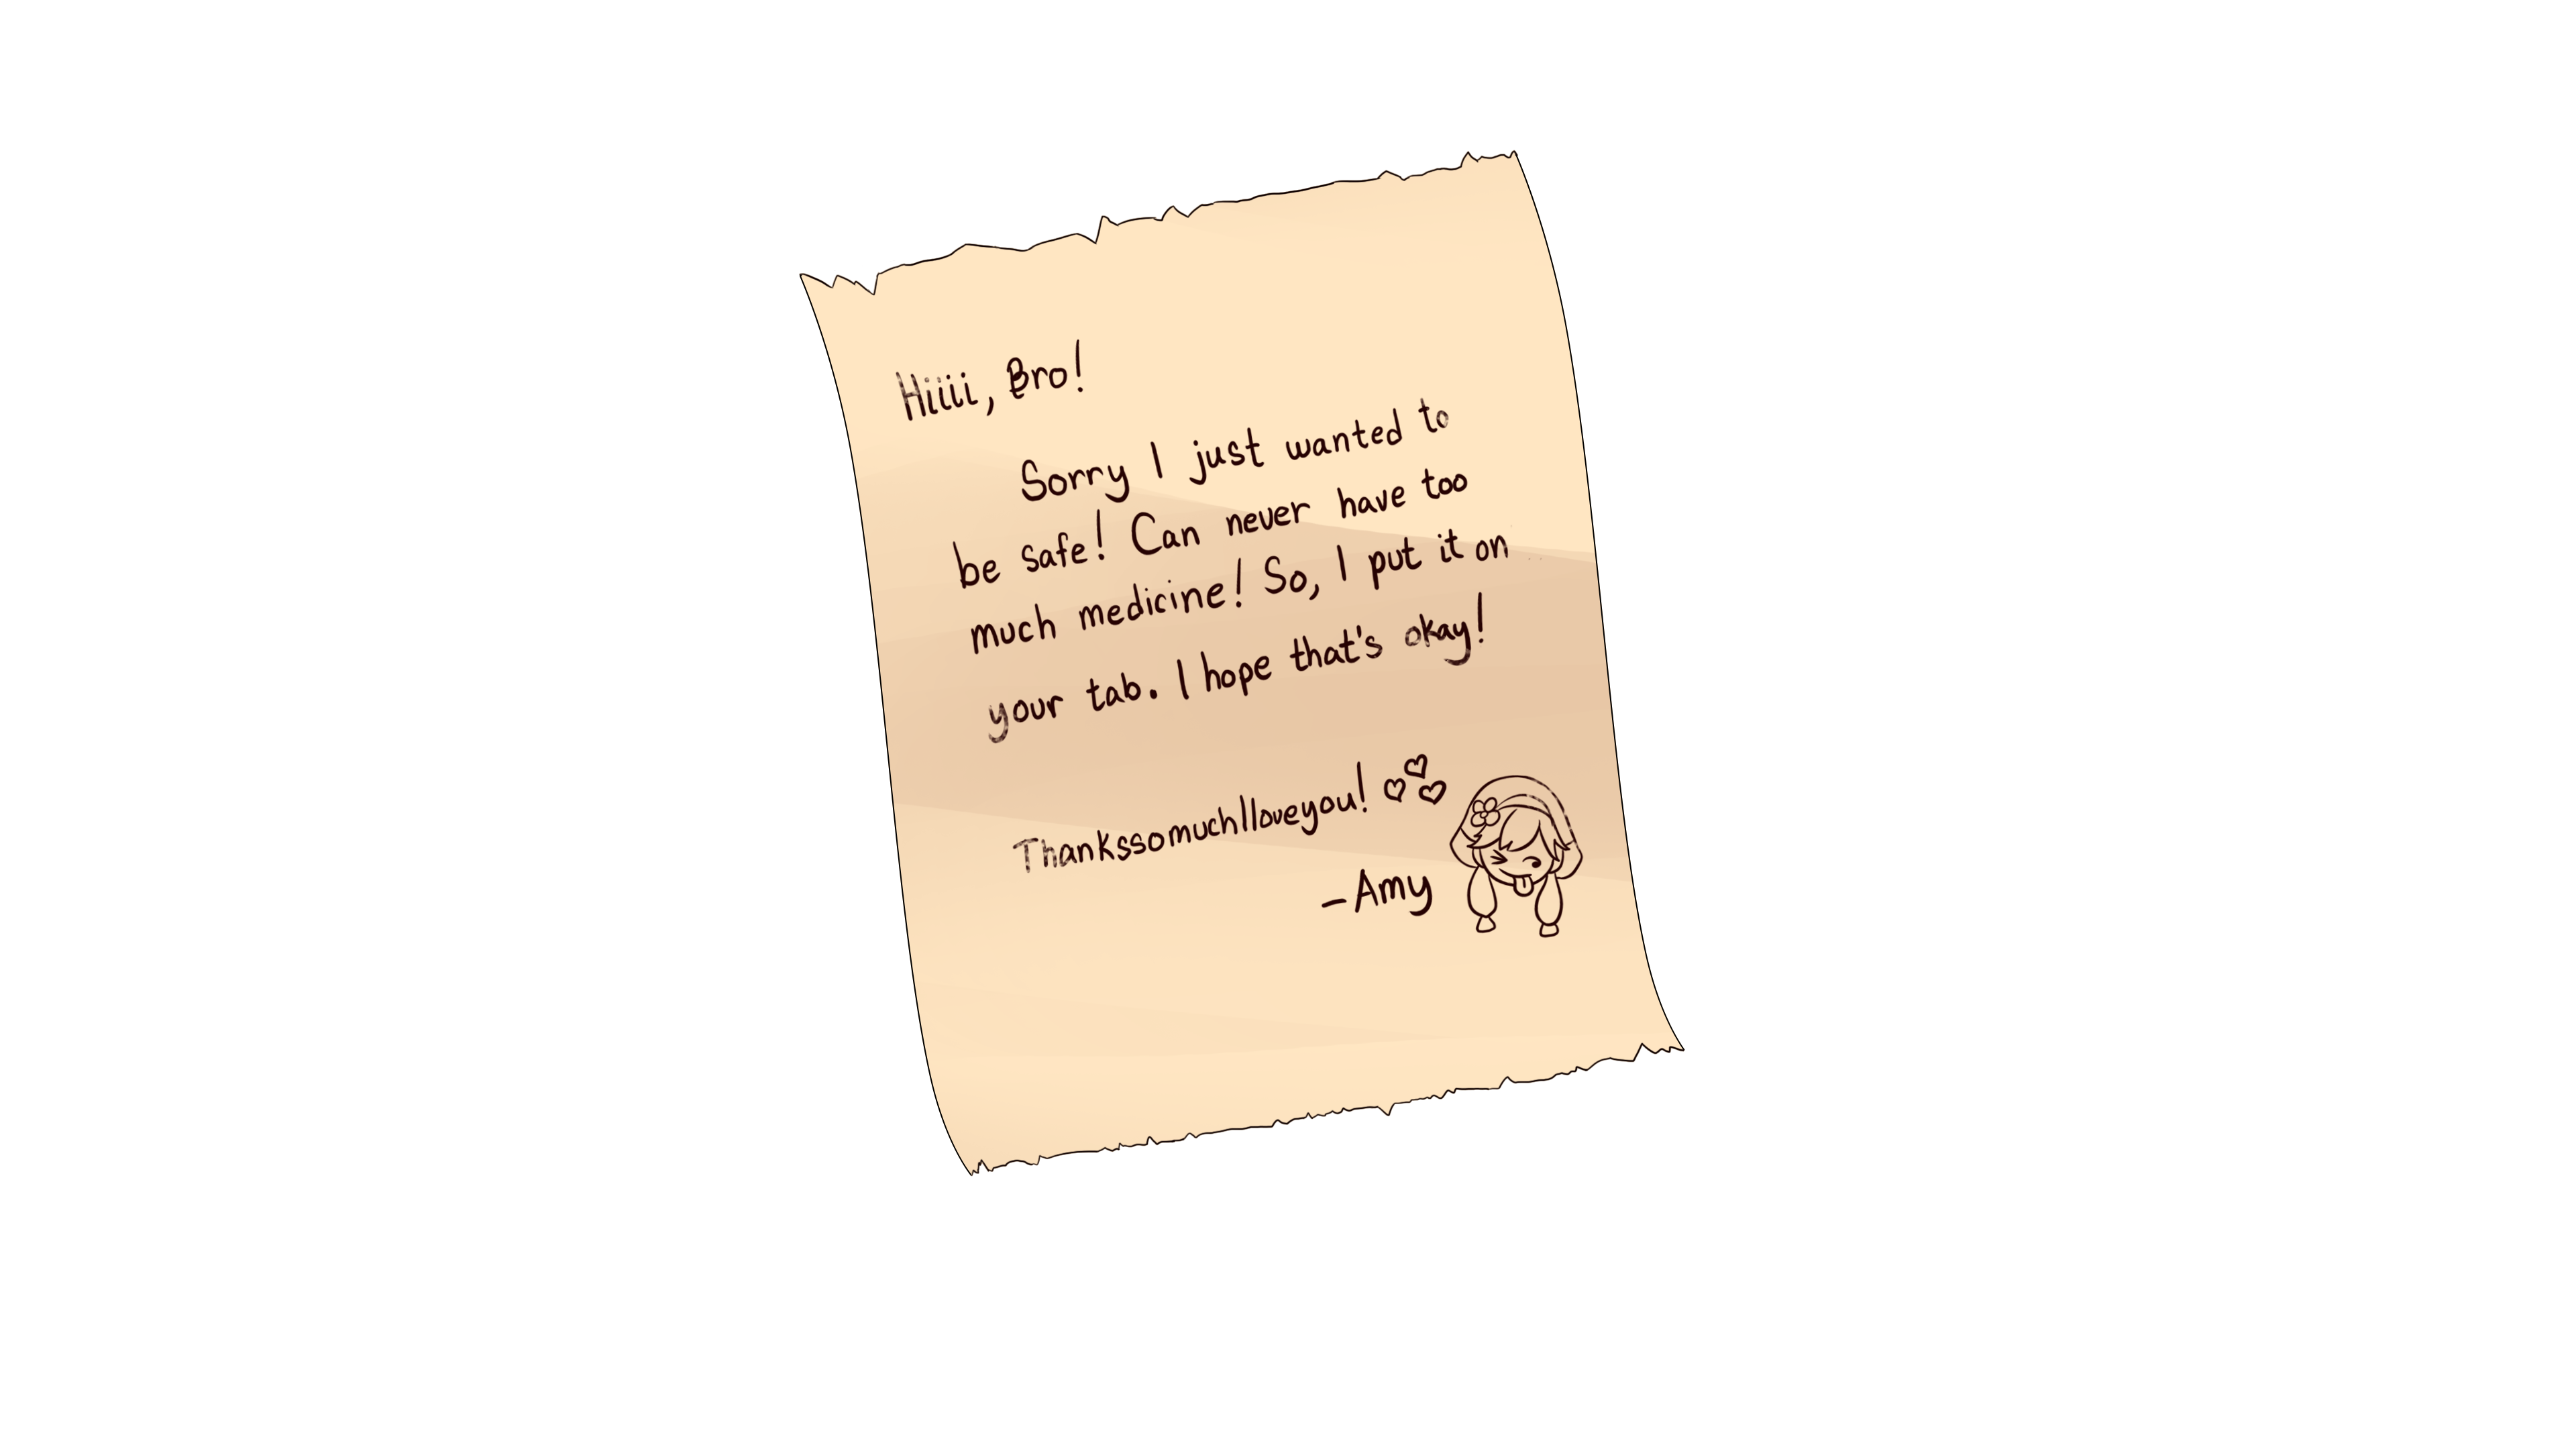 Hiiii, Bro!
Sorry I just wanted to
be safe! Can never have too
much medicine! So, I put it on
your tab. I hope that's okay!
ThankssomuchIloveyou!
-Amy